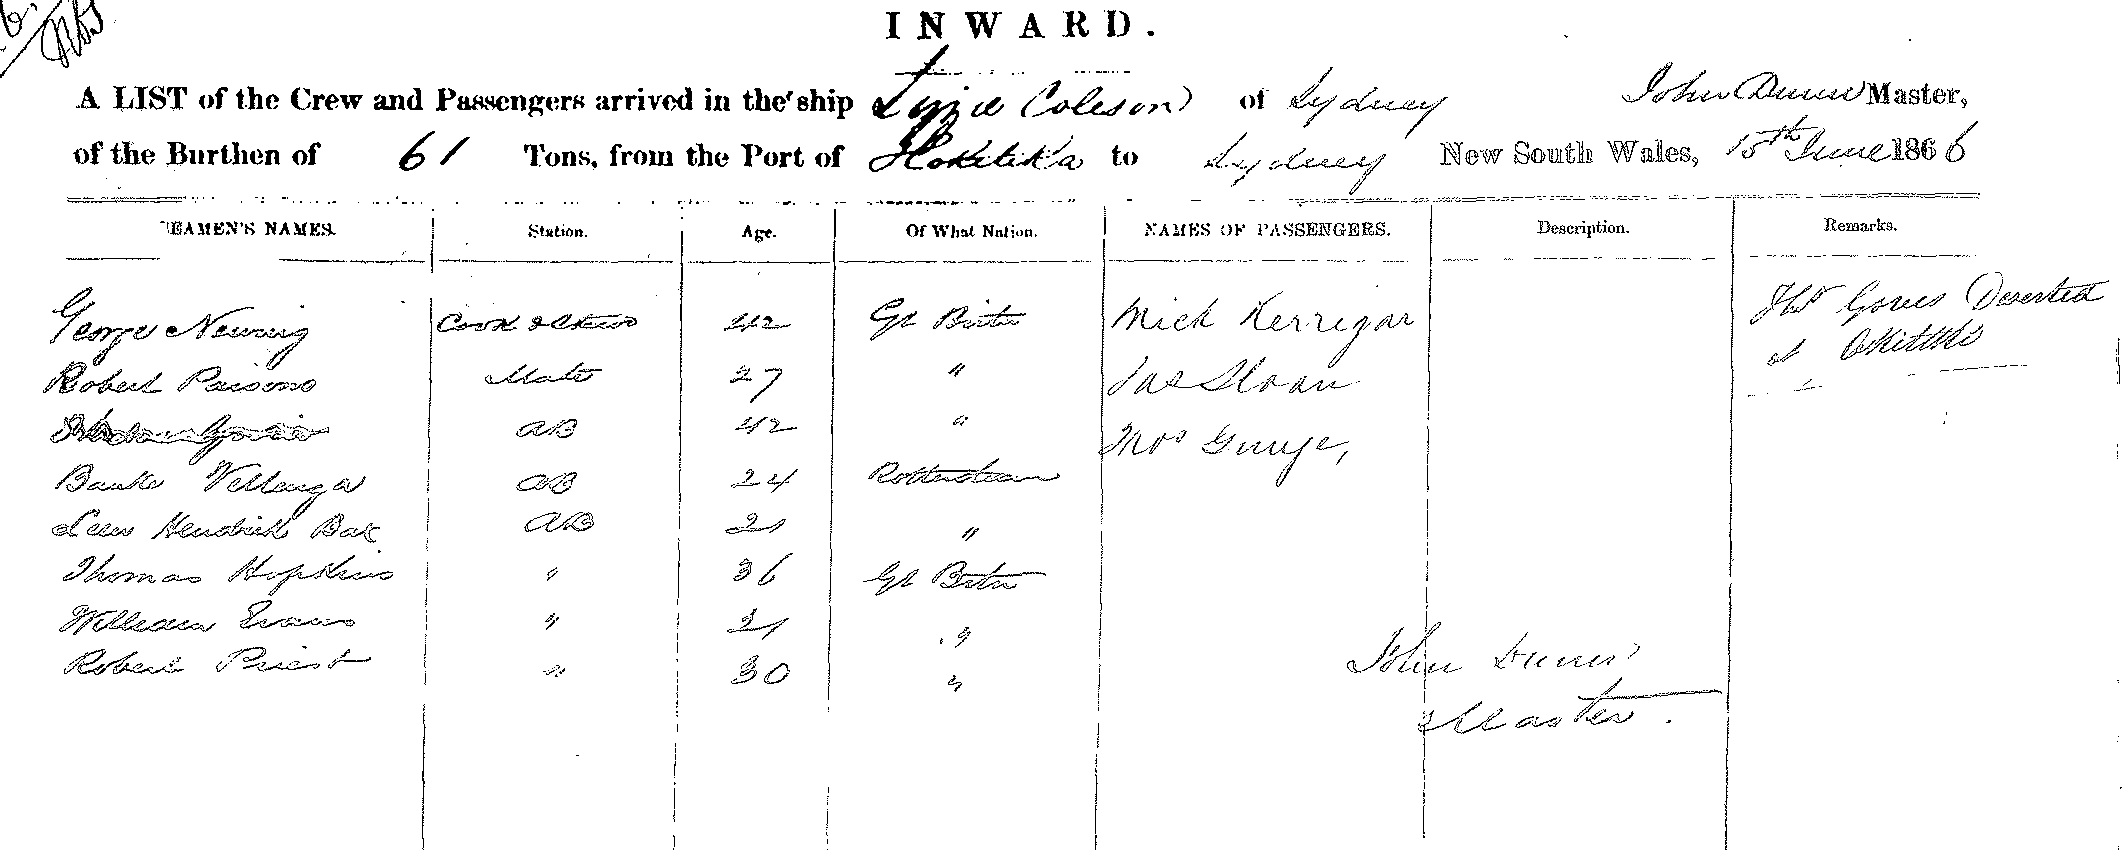 INWARD.
A LIST of the Crew and Passengers arrived in the ship Lizzie Coleson of Sydney John Dunn Master,
of the Burthen of 61 Tons, from the Port of Hokitika to Sydney New South Wales, 15th June 1866
SEAMEN'S NAMES. Station. Age. Of What Nation. NAMES OF PASSENGERS. Description. Remarks.
George Newing Cook & Stew 42 Gt Britn Mick Kerrigan Thos Gores Deserted
at
Robert Parsons Mate 27 " Jas Sloan
AB 42 " Thos
Bauke Vellenga AB 24 Rotterdam
Leen Hendrick Bak AB 21 "
Thomas Hopkins " 36 Gt Britn
William Evans " 21 "
Robert Priest " 30 "
John Dunn
Master.